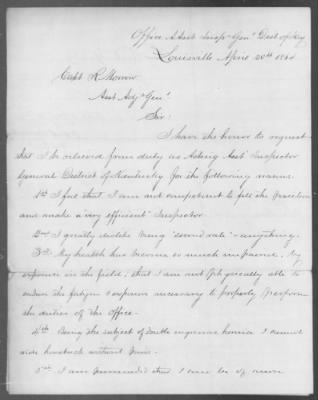 Office A Asst Insp Genl Dist of Ky
Louisville April 20th 1864
Capt R Morrow
Asst Adjt Genl
Sir:
I have the honor to request
that I be relieved from duty as Acting Asst Inspector
General District of Kentucky for the following reasons:
1st I feel that I am not competent to fill the position
and make a very efficient Inspector
2nd I greatly dislike being "second rate" anything.
3rd My health has become so much impaired by
exposure in the field, that I am not physically able to
endure the fatigue & exposure necessary to properly perform
the duties of the office.
4th Being the subject of double inguinal hernia I cannot
ride horseback without pain.
5th I am persuaded that I can be of more